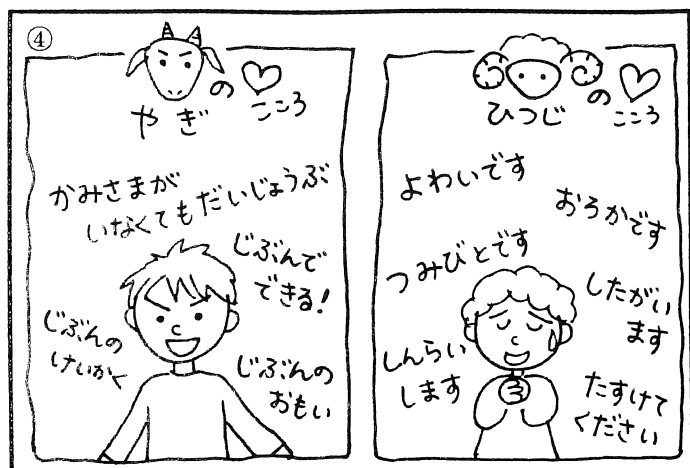 ④
やぎの♡こころ
かみさまが
いなくてもだいじょうぶ
じぶんで
できる!
じぶんの
けいかく
じぶんの
おもい
ひつじの♡こころ
よわいです
おろかです
つみびとです
したがい
ます
しんらい
します
たすけて
ください